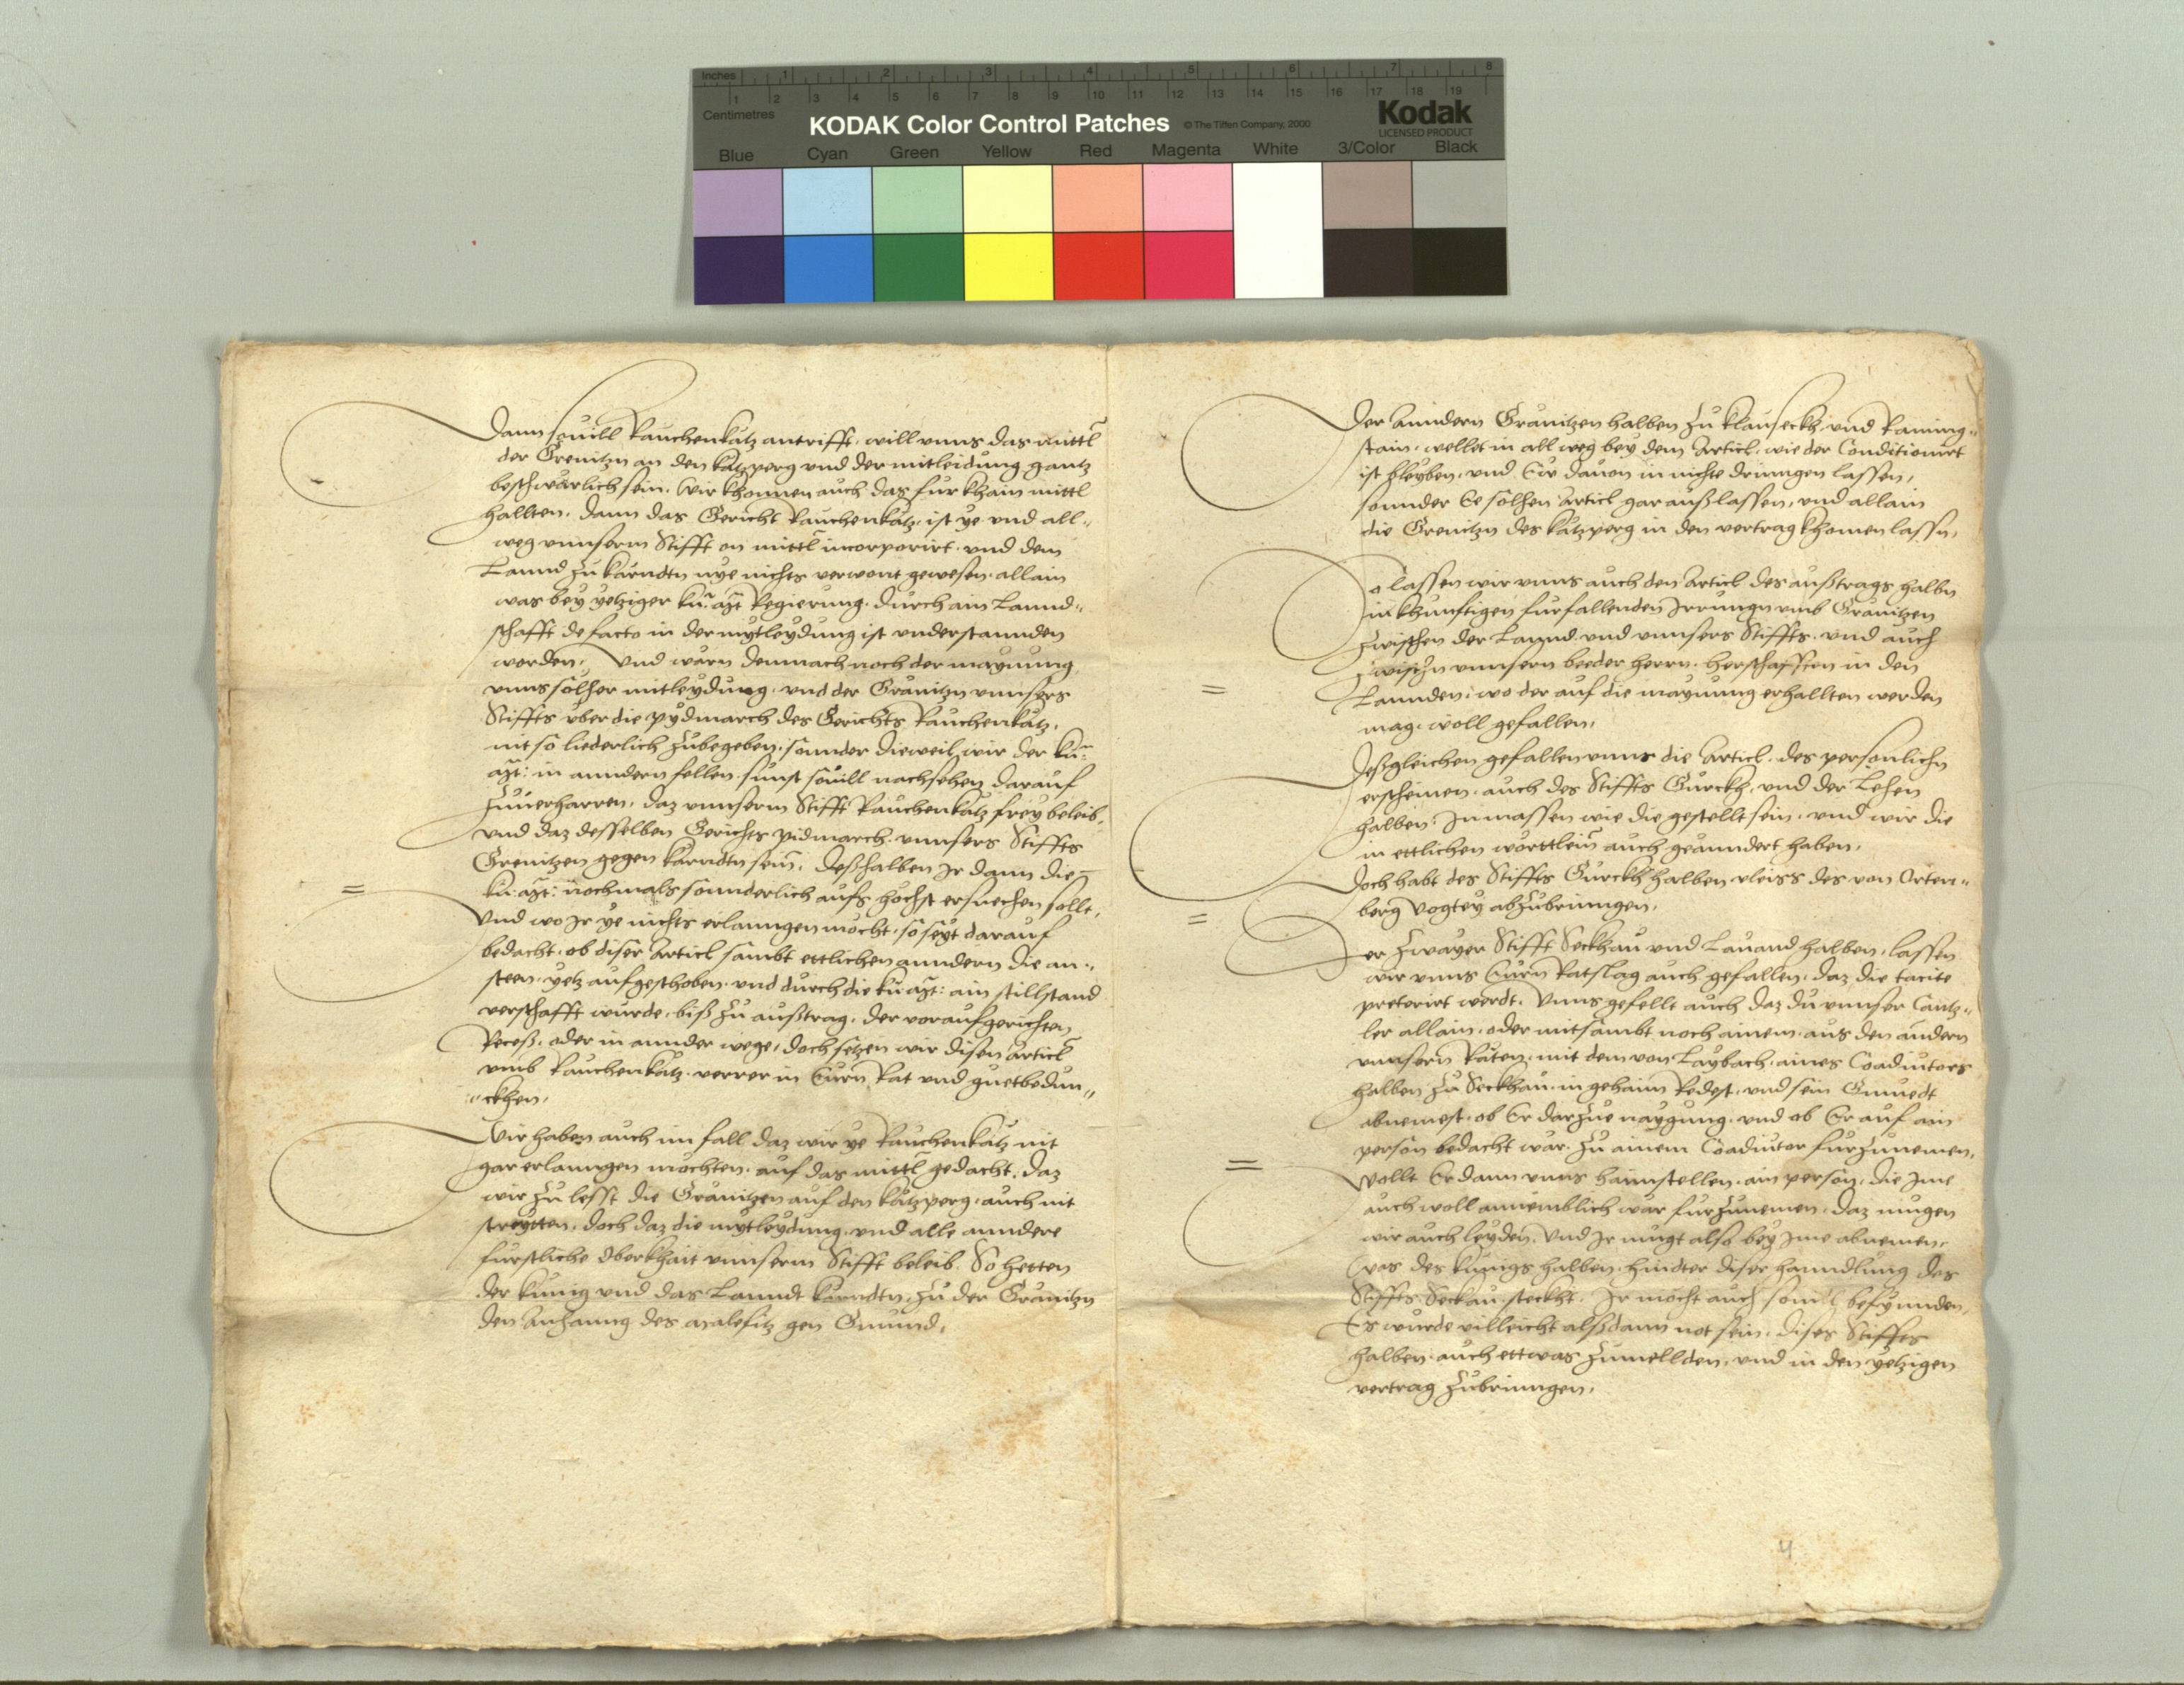 Inches 1 2 3 4 5 6 7 8
Centimetres 1 2 3 4 5 6 7 8 9 10 11 12 13 14 15 16 17 18 19
KODAK Color Control Patches © The Tiffen Company, 2000 Kodak
LICENSED PRODUCT
Blue Cyan Green Yellow Red Magenta White 3/Color Black
Dann souill Rauchenkatz antrifft, will unns das mittl
der Grenitzn an den Katzperg und der mitleidung gantz
beschwärlich sein. Wir khonnen auch das fur khain mittl
hallten, dann das Gericht Rauchenkatz, ist ye und all„
weg unnserm Stifft on mittl incorporirt, und dem
Lannd zu Kärndtn nye nichts verwont gewesen, allain
was bey yetziger ku: Mt: Regierung, durch ain Lannd„
schafft de facto in der mytleydung ist understannden
worden, Und wärn demnach noch der maynung
unns solher mitleydung, und der Gränitzn unnsers
Stiffts uber die pydmarch des Gerichts Rauchenkatz,
nit so liederlich zubegeben, sonnder dieweil wir der ku:
Mt: in anndern fellen sunst souill nachsehen, darauf
zuuerharren, daz unnserm Stifft Rauchenkatz frey beleib,
und daz desselben Gerichts pidmarch, unnsers Stiffts
Grenitzen gegen Karndtn sein, deßhalben Ir dann die
ku: Mt: nochmals sonnderlich aufs höchst ersuechen sollt,
Und wo Ir ye nichts erlanngen möcht, so seyt darauf
bedacht, ob diser Articl sambt ettlichen anndern die an„
steen, yetz aufgeschoben, und durch die ku: Mt: ain stillstand
verschafft wurde, biß zu außtrag, der vor aufgerichten
Receß, oder in annder wege, doch setzen wir disen articl
umb Rauchenkatz, verrer in Eurn Rat und guetbedun„
„ckhen,
Wir haben auch im fall daz wir ye Rauchenkatz nit
gar erlanngen möchten, auf das mittl gedacht, daz
wir zu lesst die Gränitzen auf den Kätzperg, auch nit
streytten, doch daz die mytleydung, und alle anndere
furstliche Oberkhait unnserm Stifft beleib, So hetten
der Kunig und das Lanndt Karndtn, zu der Gränitzn
den anhanng des malefitz gen Gmund,
Der anndern Gränitzen halben zu Klauseckh, und Raming„
stain, wellet in all weg bey dem Articl, wie der Conditionirt
ist bleyben, und Eur dauon in nichte dringen lassen,
sonnder Ee solhen Articl gar außlassen, und allain
die Grenitzn des Kätzperg in den vertrag khomen lassn,
So lassen wir unns auch den Articl des außtrags halbn
in khunftigen furfallenden Irrungn umb Gränitzen
zwischen der Lannd, und unnsers Stiffts, und auch
zwischn unnsern beeder herrn, herschafften in den
Lannden, wo der auf die maynung erhallten werden
mag, woll gefallen,
Deßgleichen gefallen unns die Articl, des personlichn
erscheinen, auch des Stiffts Gurckh, und der Lehen
halben, Inmassen wie die gestellt sein, und wir die
in ettlichen wörttlein auch geänndert haben,
Doch habt des Stiffts Gurckh halben vleiss des von Orten„
berg Vogtey abzubrinngen,
Der zwayer Stifft Seckhau und Lauand halben, lassen
wir unns Eurn Ratslag auch gefallen, daz die tacite
preterirt werdt, Unns gefellt auch daz du unnser Cantz„
ler allain, oder mitsambt noch ainem, aus den andern
unnsern Räten, mit dem von Laybach, aines Coadiutors
halben zu Seckhau, in gehaim Redest, und sein Gmuedt
abnemest, ob Er darzue naygung, und ob Er auf ain
person bedacht wär, zu ainem Coadiutor furzunemen,
Wollt Er dann unns haimstellen, ain person, die Ime
auch woll annemblich wär furzunemen, daz mugen
wir auch leyden, Und Ir mugt also bey Ime abnemen,
was des Kunigs halben, hindter diser hanndlung des
Stiffts Seckau steckht, Ir mocht auch souill befynnden,
Es wurde villeicht alßdann not sein, dises Stiffts
halben, auch ettwas zumellden, und in den yetzigen
vertrag zubrinngen,
4